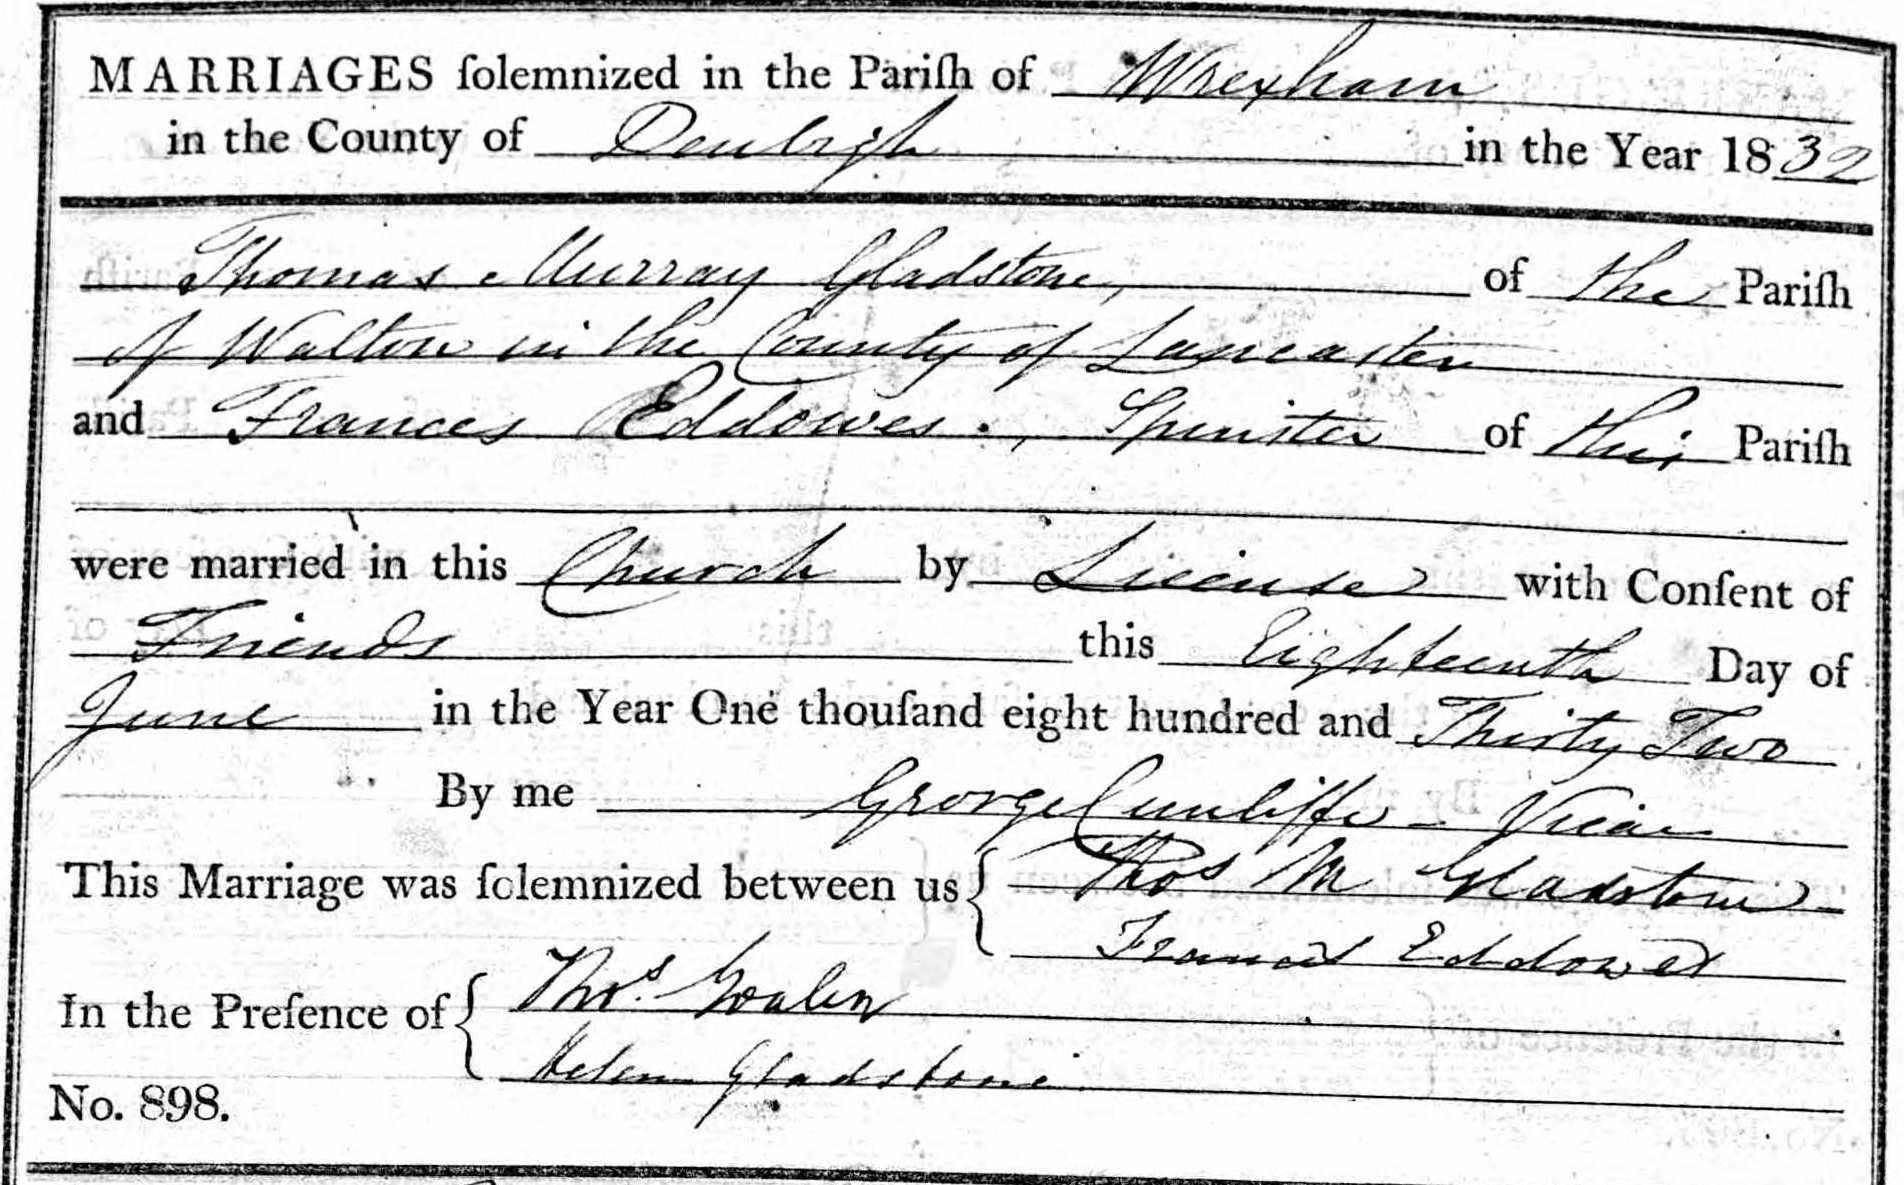 MARRIAGES ſolemnized in the Pariſh of Wrexham
in the County of Denbigh in the Year 1832
Thomas Murray Gladstone, of the Pariſh
of Walton in the County of Lancaster
and Frances Eddowes., Spinster of this Pariſh
were married in this Church by License with Conſent of
Friends this Eighteenth Day of
June in the Year One thouſand eight hundred and Thirty Two
By me George Cunliffe - Vicar
This Marriage was ſolemnized between us { Thos M Gladstone
Frances Eddowes
In the Preſence of { Thos.
Helen Gladstone
No. 898.